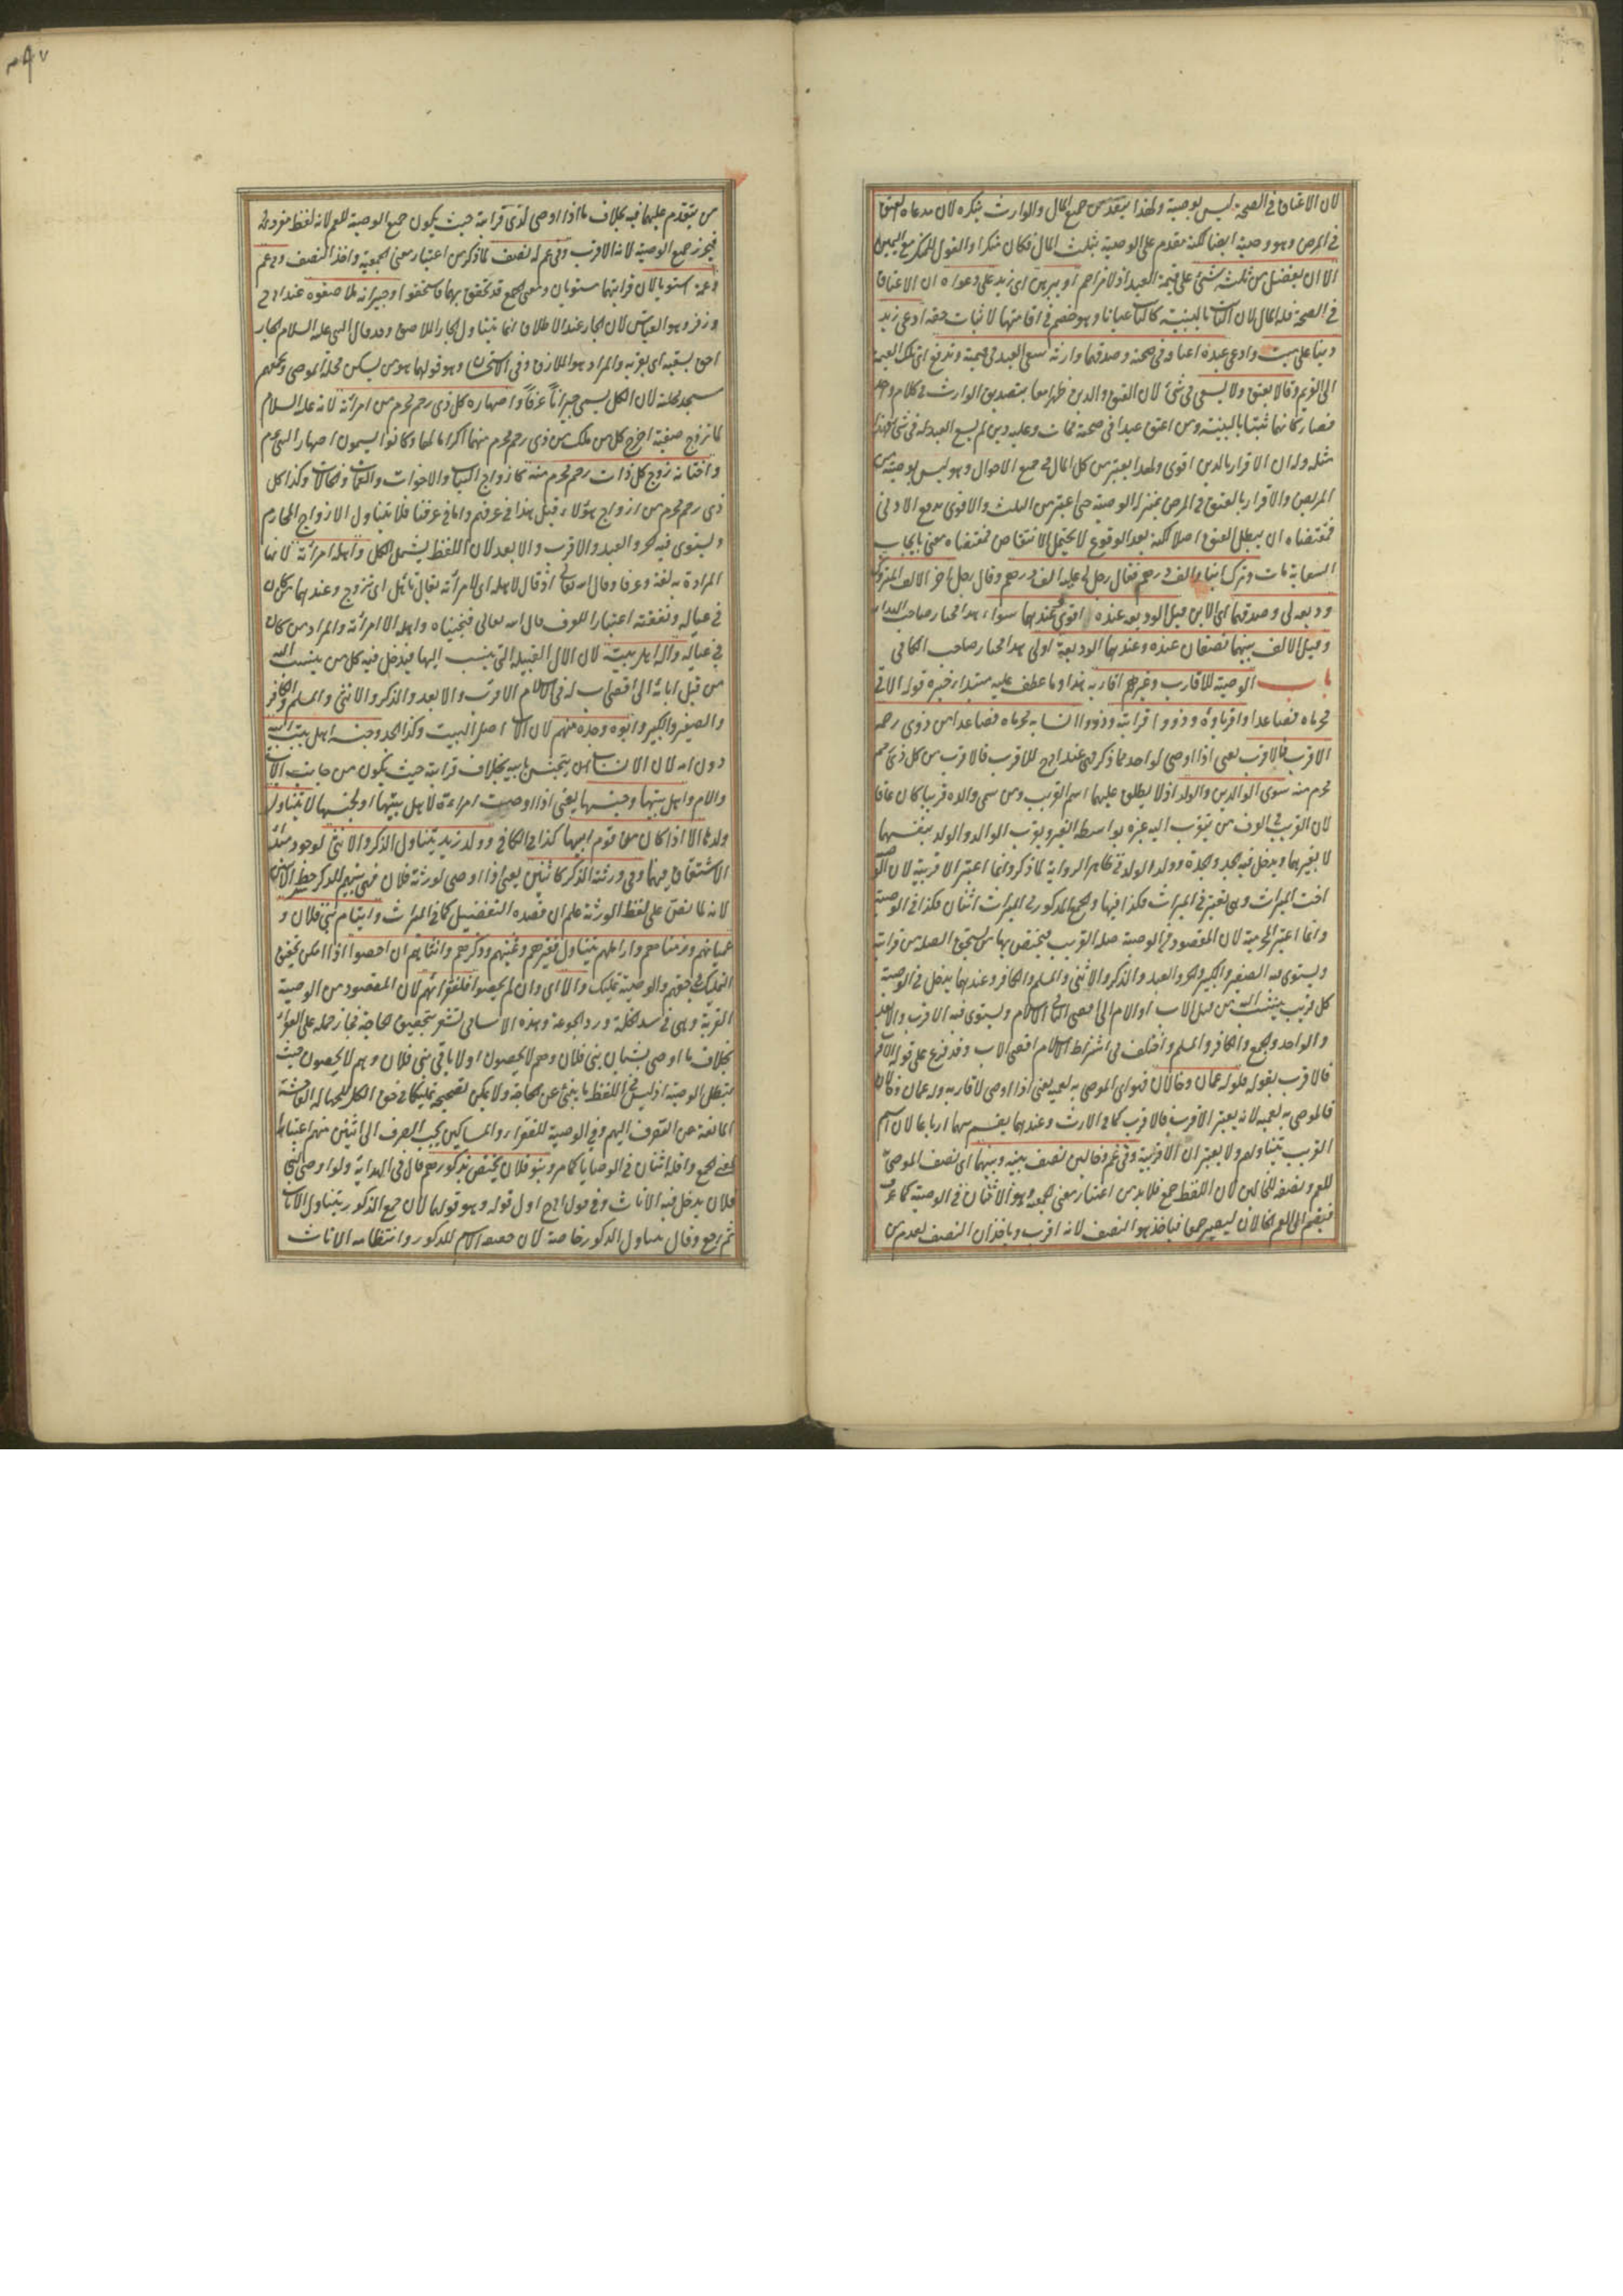 لان الاعتاق في الصحة ليس بوصية ولهذا ينفذ من جميع المال والوارث ينكره لان مدعاه العتق
في المرض وهو وصية ايضا لكنه مقدم على الوصية بثلث المال فكان منكرا والقول للمنكر مع اليمين
الا ان يفضل من ثلثه شئ على قيمة العبد اذ لا مزاحم او يبرهن اى زيد على دعواه ان الاعتاق
في الصحة فله المال لان الثابت بالبينة كالثابت عيانا وهو خصم في اقامتها لاثبات حقه ادعى زيد
دينا على ميت وادعى عبده اعتاقه في صحته وصدقهما وارثه سعى العبد في قيمته وتدفع اى تلك القيمة
الى الغريم وقالا يعتق ولا يسعى في شئ لان العتق والدين ظهرا معا بتصديق الوارث في كلام واحد
فصار كانهما ثبتا بالبينة ومن اعتق عبدا في صحته فمات وعليه دين لم يسع العبد له في شئ فهذا
مثله وله ان الاقرار بالدين اقوى ولهذا يعتبر من كل المال في جميع الاحوال وهو ليس بوصية من
المريض والاقرار بالعتق في المرض بمنزلة الوصية حتى اعتبر من الثلث والاقوى يدفع الادنى
فمقتضاه ان يبطل العتق اصلا لكنه بعد الوقوع لا يحتمل الانتقاض فنقضناه معنى بايجاب
السعاية مات وترك ابنا والف درهم فقال رجل لي عليه الف درهم وقال رجل اخر الالف المتروك
وديعة لي وصدقهما اى الابن قيل الوديعة عنده اقوى وعندهما سواء هذا مختار صاحب الهداية
وقيل الالف بينهما نصفان عنده وعندهما الوديعة اولى هذا مختار صاحب الكافي
باب الوصية للاقارب وغيرهم اقاربه هذا وما عطف عليه مبتداء خبره قوله الاتي
محرماه فصاعدا واقرباؤه وذووا قرابته وذووا انسابه محرماه فصاعدا من ذوى رحمه
الاقرب فالاقرب يعنى اذا اوصى لواحد مما ذكر فهى عند ابى ح للاقرب فالاقرب من كل ذى رحم
محرم منه سوى الوالدين والولد اذ لا يطلق عليهما اسم القريب ومن سمى والده قريبا كان عاقا
لان القريب في العرف من يتقرب اليه غيره بواسطة الغير ويقرب الوالد والولد بنفسهما
لا بغيرهما ويدخل فيه الجد والجدة وولد الولد في ظاهر الرواية لما ذكر وانما اعتبر الاقربية لان الوصية
اخت الميراث وهى تعتبر في الميراث فكذا فيها والجمع المذكور في الميراث اثنان فكذا في الوصية
وانما اعتبر المحرمية لان المقصود في الوصية صلة القريب فيختص بها من يستحق الصلة من قرابته
ويستوى فيه الصغير والكبير والحر والعبد والذكر والانثى والمسلم والكافر وعندهما يدخل في الوصية
كل قريب ينتسب اليه من قبل الاب او الام الى اقصى اب له في الاسلام ويستوى فيه الاقرب والابعد
والواحد والجمع والكافر والمسلم واختلف في اشتراط اسلام اقصى الاب وقد فرع على قوله الاقرب
فالاقرب بقوله فلو له عمان وخالان فهو اى الموصى به لعميه يعنى اذا اوصى لاقاربه وله عمان وخالان
فالموصى به لعميه لانه يعتبر الاقرب فالاقرب كما في الارث وعندهما يقسم بينهما ارباعا لان اسم
القريب يتناولهم ولا يعتبر ان الاقربية وفي عم وخالين نصف بينه وبينهما اى نصف الموصى به
للعم ونصفه للخالين لان اللفظ جمع فلا بد من اعتبار معنى الجمعية وهو الاثنان في الوصية كما عرف
فيضم الى العم الخالان ليصير جمعا فياخذ هو النصف لانه اقرب وياخذان النصف لعدم من
من يتقدم عليهما فيه بخلاف ما اذا اوصى لذى قرابة حيث يكون جميع الوصية للعم لانه لفظ مفرد
فيحرز جميع الوصية لانه الاقرب وفي عم له نصف لما ذكر من اعتبار معنى الجمعية واخذ النصف وفي عم
وعمة استويا لان قرابتهما مستويان ومعنى الجمع قد تحقق بهما فاستحقوا وجيرانه ملاصقوه عند ابى ح
وزفر وهو القياس لان الجار عند الاطلاق انما يتناول الجار الملاصق وقد قال النبي عليه السلام الجار
احق بسقبه اى بقربه والمراد هو الملازق وفي الاستحسان وهو قولهما هو من يسكن محلة الموصى ويجمعهم
مسجد المحلة لان الكل يسمى جيرانا عرفا واصهاره كل ذى رحم محرم من امرأته لانه عليه السلام
لما تزوج صفية اخرج كل من ملك من ذى رحم محرم منها اكراما لها وكانوا يسمون اصهار النبي عم
واختانه زوج كل ذات رحم محرم منه كازواج البنات والاخوات والعمات والخالات وكذا كل
ذى رحم محرم من ازواج هؤلاء قيل هذا في عرفهم واما في عرفنا فلا يتناول الا زواج المحارم
ويستوى فيه الحر والعبد والاقرب والابعد لان اللفظ يشمل الكل واهله امرأته لانها
المرادة به لغة وعرفا وقال الله تعالى اذ قال لاهله اى لامرأته يقال تاهل اى تزوج وعندهما من كان
في عياله ونفقته اعتبارا للعرف قال الله تعالى فنجيناه واهله الا امرأته والمراد من كان
في عياله وآله اهل بيته لان الال القبيلة التى ينسب اليها فيدخل فيه كل من ينسب اليه
من قبل ابائه الى اقصى اب له في الاسلام الاقرب والابعد والذكر والانثى والمسلم والكافر
والصغير والكبير وابوه وجده منهم لان الاب اصل البيت وكذا الجد وجنسه اهل بيت ابيه
دون امه لان الانسان يتجنس بابيه بخلاف قرابته حيث تكون من جانب الاب
والام واهل بيتها وجنسها يعنى اذا اوصت امرأة لاهل بيتها او لجنسها لا يتناول
ولدها الا اذا كان من قوم ابيها كذا في الكافي وولد زيد يتناول الذكر والانثى لوجود مبدأ
الاشتقاق فيهما وفي ورثته الذكر كانثيين يعنى اذا اوصى لورثة فلان فهى بينهم للذكر حظ الانثيين
لانه لما نص على لفظ الورثة علم ان قصده التفضيل كما في الميراث وايتام بنى فلان و
عميانهم وزمناهم واراملهم يتناول فقيرهم وغنيهم وذكرهم وانثاهم ان احصوا اذا امكن تحقق
التمليك في حقهم والوصية تمليك والا اى وان لم يحصوا فلفقرائهم لان المقصود من الوصية
القربة وهى في سد الخلة ورد الجوعة وهذه الاسامى تشعر بتحقيق الحاجة فجاز حمله على الفقراء
بخلاف ما اوصى لشبان بنى فلان وهم لا يحصون او لايامى بنى فلان وهم لا يحصون حيث
تبطل الوصية اذ ليس في اللفظ ما ينبئ عن الحاجة ولا يمكن تصحيحه تمليكا في حق الكل للجهالة الفاحشة
المانعة عن الصرف اليهم وفي الوصية للفقراء والمساكين يجب الصرف الى اثنين منهم اعتبارا
لمعنى الجمع واقله اثنان في الوصايا كما مر وبنو فلان يختص بذكورهم قال في الهداية ولو اوصى لبنى
فلان يدخل فيه الاناث وفي قول ابى ح اول قوله وهو قولهما لان جمع الذكور يتناول الاناث
ثم رجع وقال يتناول الذكور خاصة لان حقيقة الاسم للذكور وانتظامه الاناث